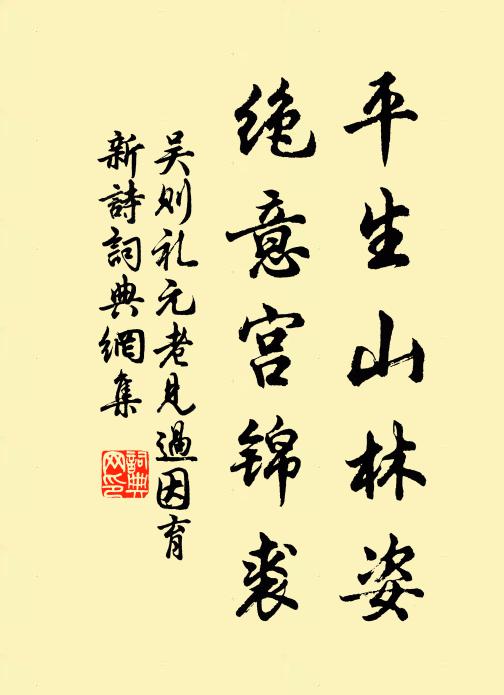 平生山林姿
绝意宫锦裘
吴则礼元老见過因育
新詩詞典網集
詞典网印